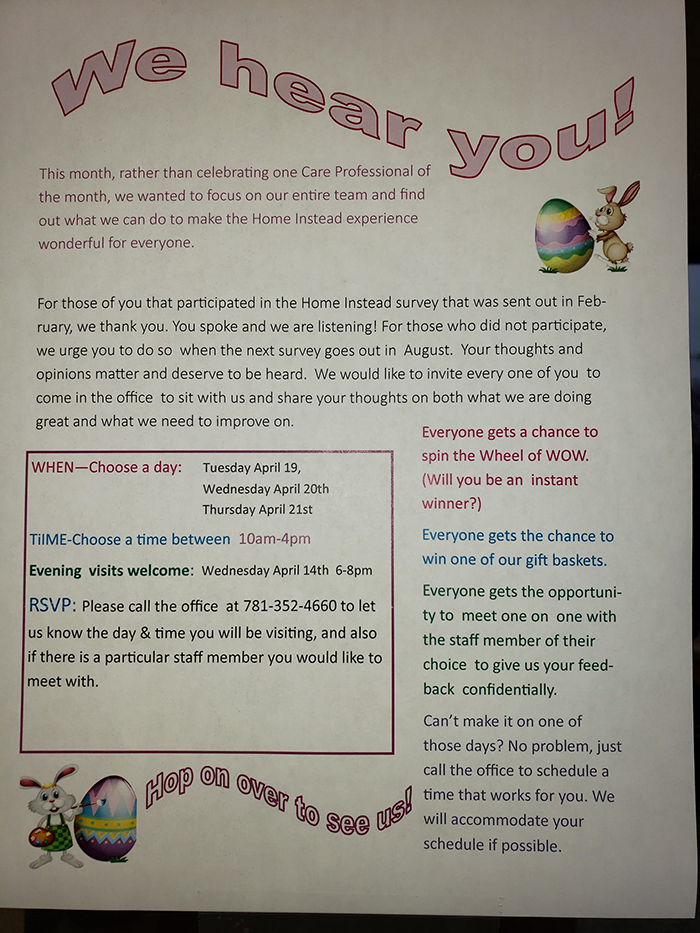 We hear you!
This month, rather than celebrating one Care Professional of
the month, we wanted to focus on our entire team and find
out what we can do to make the Home Instead experience
wonderful for everyone.
For those of you that participated in the Home Instead survey that was sent out in Feb-
ruary, we thank you. You spoke and we are listening! For those who did not participate,
we urge you to do so when the next survey goes out in August. Your thoughts and
opinions matter and deserve to be heard. We would like to invite every one of you to
come in the office to sit with us and share your thoughts on both what we are doing
great and what we need to improve on.
WHEN—Choose a day: Tuesday April 19,
Wednesday April 20th
Thursday April 21st
TiIME-Choose a time between 10am-4pm
Evening visits welcome: Wednesday April 14th 6-8pm
RSVP: Please call the office at 781-352-4660 to let
us know the day & time you will be visiting, and also
if there is a particular staff member you would like to
meet with.
Everyone gets a chance to
spin the Wheel of WOW.
(Will you be an instant
winner?)
Everyone gets the chance to
win one of our gift baskets.
Everyone gets the opportuni-
ty to meet one on one with
the staff member of their
choice to give us your feed-
back confidentially.
Can't make it on one of
those days? No problem, just
call the office to schedule a
time that works for you. We
will accommodate your
schedule if possible.
Hop on over to see us!